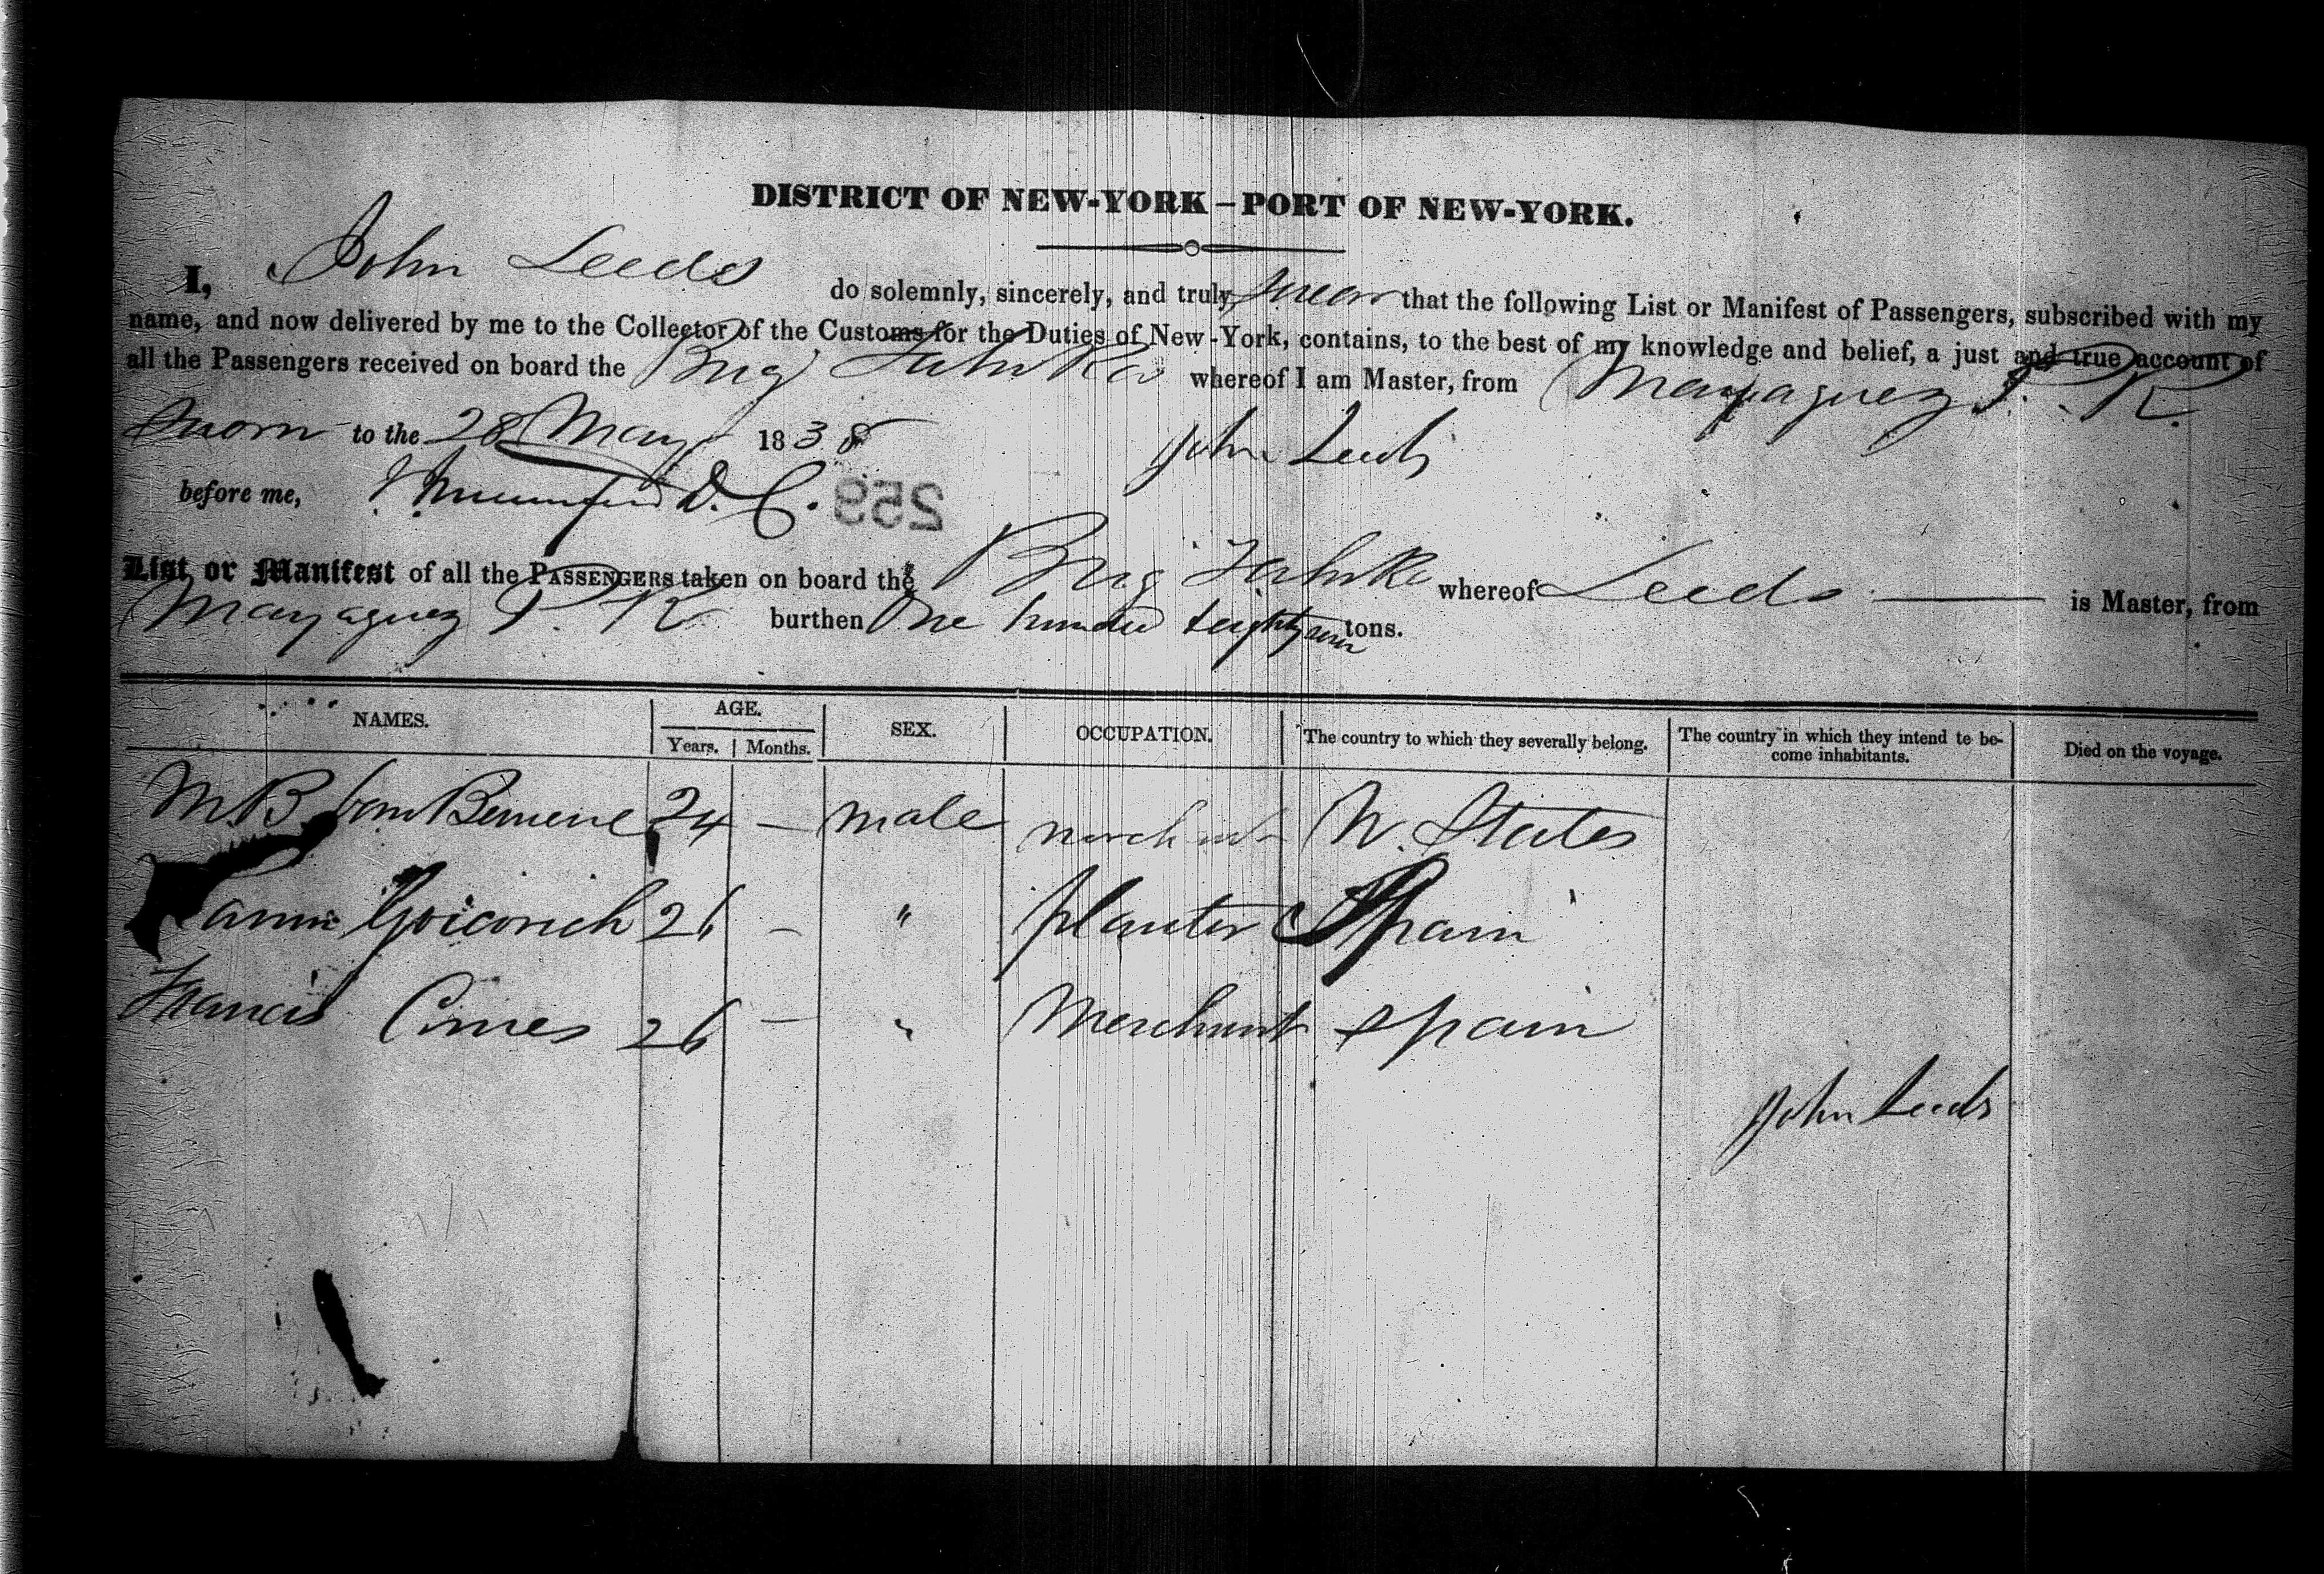 DISTRICT OF NEW-YORK – PORT OF NEW-YORK.
I, John Leeds do solemnly, sincerely, and truly, swear that the following List or Manifest of Passengers, subscribed with my
name, and now delivered by me to the Collector of the Customs for the Duties of New-York, contains, to the best of my knowledge and belief, a just and true account of
all the Passengers received on board the Brig whereof I am Master, from Mayaguez P. R.
Sworn to the 28 May 1838 John Leeds
before me, D. C. 259
List or Manifest of all the PASSENGERS taken on board the Brig whereof Leeds is Master, from
Mayaguez P. R. burthen One hundred & eighty seven tons.
NAMES. AGE. SEX. OCCUPATION. The country to which they severally belong. The country in which they intend te be- Died on the voyage.
Years. Months. come inhabitants.
M. B. 24 — male merchant U. States
26 — " planter Spain
Francis 26 — " Merchant Spain
John Leeds